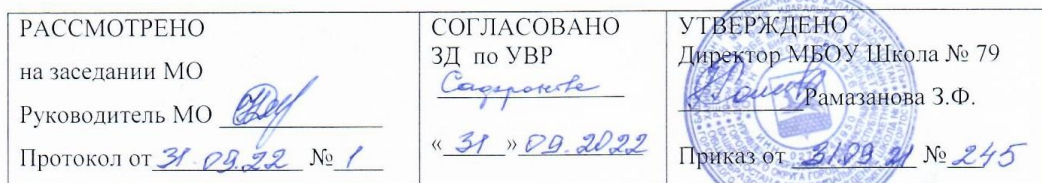 РАССМОТРЕНО
на заседании МО
Руководитель МО
Протокол от 31.09.22 № 1
СОГЛАСОВАНО
ЗД по УВР
« 31 » 09.2022
УТВЕРЖДЕНО
Директор МБОУ Школа № 79
Рамазанова З.Ф.
Приказ от 31.09 21 № 245